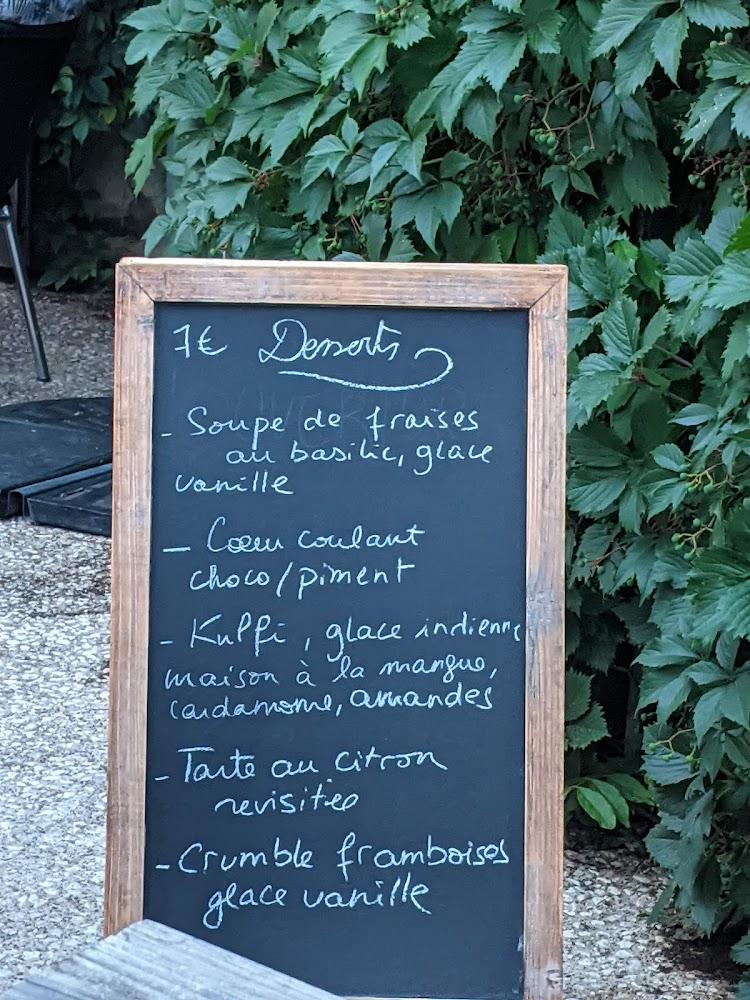 7€ Desserts
- Soupe de fraises
au basilic, glace
vanille
- Cœur coulant
choco/piment
- Kulfi, glace indienne
maison à la mangue,
cardamome, amandes
- Tarte au citron
revisitée
- Crumble framboises
glace vanille